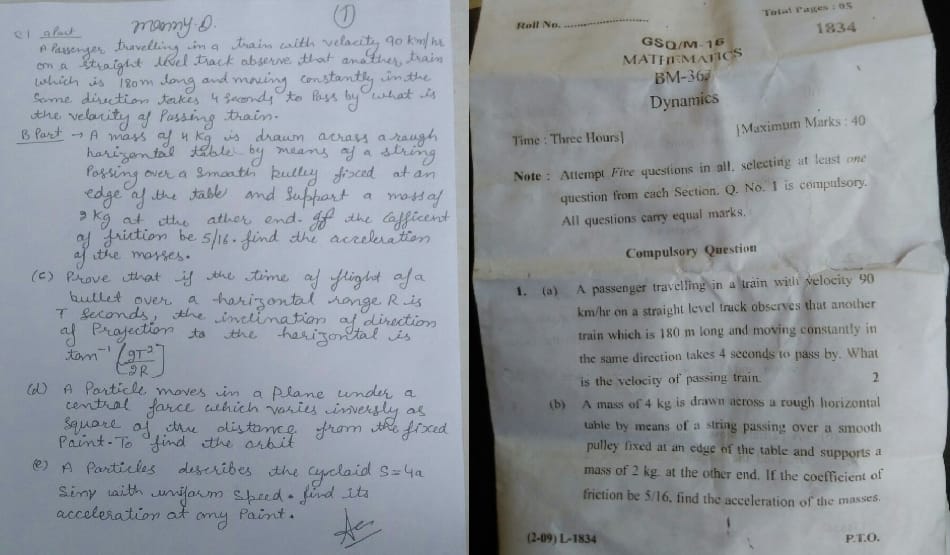 ①
Q1 a Part
A Passenger travelling in a train with velocity 90 km/hr
on a straight level track observe that another train
which is 180m long and moving constantly in the
Same direction takes 4 seconds to Pass by what is
the velocity of Passing train.
B Part → A mass of 4 Kg is drawn across a rough
horizontal table by means of a string
Passing over a Smooth pulley fixed at an
edge of the table and Support a mass of
2 Kg at the other end. If the Cofficent
of friction be 5/16. find the acceleration
of the masses.
(C) Prove that if the time of flight of a
bullet over a horizontal range R is
T Seconds, the inclination of direction
of Projection to the horizontal is
tan⁻¹ [gT²/2R]
(d) A Particle moves in a Plane under a
central force which varies inversly as
Square of the distance from the fixed
Point. To find the orbit
(e) A Particles describes the cycloid S=4a
Sinψ with uniform Speed. find its
acceleration at any Point.
Roll No. ....................
Total Pages : 05
GSQ/M-16
1834
MATHEMATICS
BM-363
Dynamics
Time : Three Hours]
[Maximum Marks : 40
Note : Attempt Five questions in all, selecting at least one
question from each Section. Q. No. 1 is compulsory.
All questions carry equal marks.
Compulsory Question
1. (a) A passenger travelling in a train with velocity 90
km/hr on a straight level track observes that another
train which is 180 m long and moving constantly in
the same direction takes 4 seconds to pass by. What
is the velocity of passing train. 2
(b) A mass of 4 kg is drawn across a rough horizontal
table by means of a string passing over a smooth
pulley fixed at an edge of the table and supports a
mass of 2 kg. at the other end. If the coefficient of
friction be 5/16, find the acceleration of the masses.
(2-09) L-1834
P.T.O.